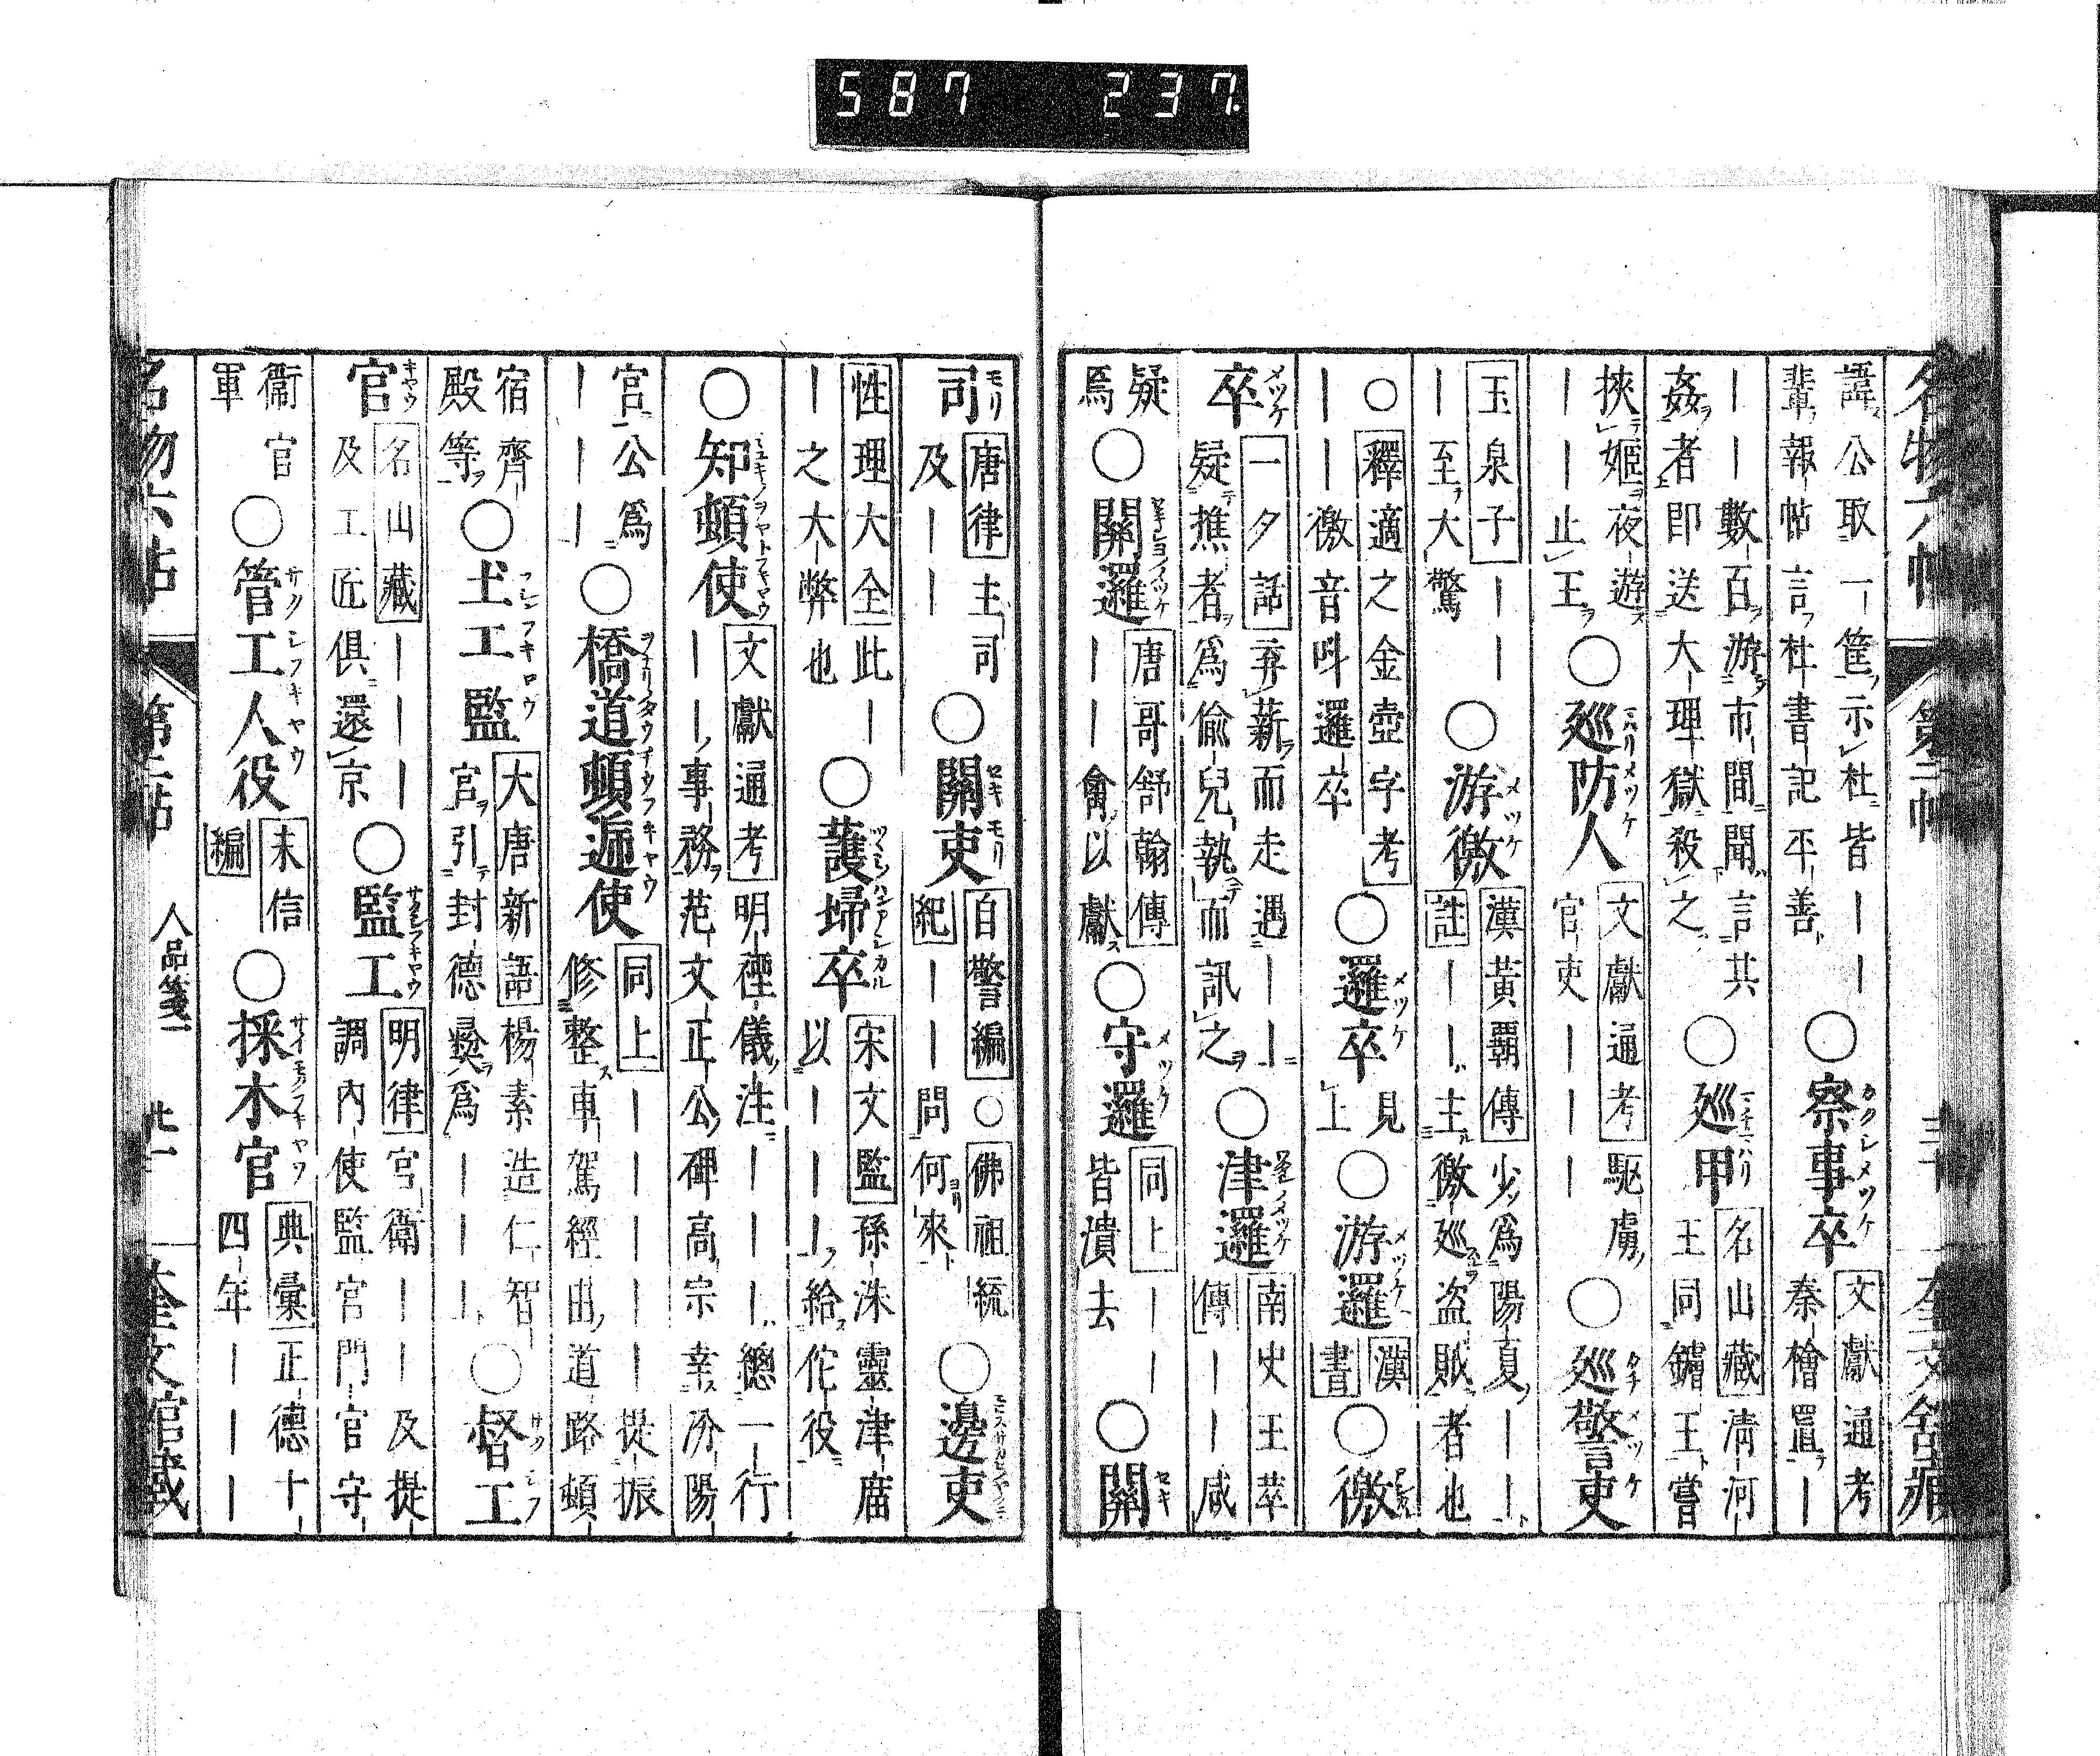 587 237.
名物六帖 第二帖 奎文館藏
諱公取一筐示杜皆｜｜○察事卒 文獻通考
輩報帖言杜書記平善 秦檜置｜
｜｜數百游市間聞言其○巡甲 名山藏 淸河
姦者即送大理獄殺之 王同鏽王嘗
挾姬夜游○巡防人 文獻通考 駆虜○巡警吏
｜｜止王 官吏｜｜｜
玉泉子｜｜○游徼 漢黃覇傳 少爲陽夏｜｜
｜至大驚 註｜｜主徼巡盗賊者也
○釋適之金壺字考○邏卒 見上○游邏 漢書○徼
｜｜徼音呌邏卒
卒 一夕話 弃薪而走遇｜｜○津邏 南史王萃
疑樵者爲偷兒執而訊之 傳｜｜咸
疑○關邏 唐哥舒翰傳○守邏 同上｜｜○關
焉｜｜禽以獻 皆潰去
司 唐律 主司○關吏 自警編○佛祖統○邊吏
及｜｜ 紀｜｜問何來
性理大全 此｜○護婦卒 宋文監 孫洙靈津庿
｜之大弊也 以｜｜｜給佗役
○知頓使 文獻通考 明禋儀注｜｜｜總一行
｜｜｜事務 范文正公碑高宗幸汾陽
官公爲○橋道頓遞使 同上｜｜｜｜｜提振
｜｜｜ 修整車駕經由道路頓
宿齊○土工監 大唐新語 楊素造仁智○督工
殿等 官引封德彜爲｜｜｜
官 名山藏｜｜｜○監工 明律 宮衛｜｜及提
及工匠俱還京 調內使監官門官守
衞官○管工人役 未信○採木官 典彙 正德十
軍 編 四年｜｜｜
名物六帖 第二帖 人品箋一 廿一 奎文館藏